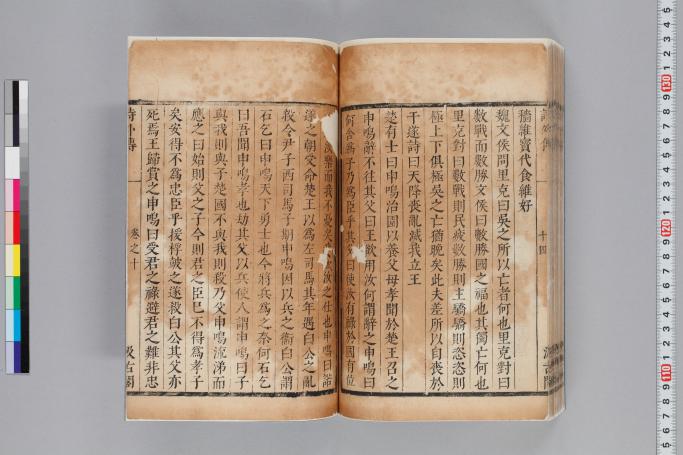 十四
穡維寳代食維好
魏文侯問里克曰吳之所以亡者何也里克對曰
數戰而數勝文侯曰數勝國之福也其獨亡何也
里克對曰數戰則民疲數勝則主驕驕則恣恣則
極上下俱極吳之亡猶晚矣此夫差所以自喪於
干遂詩曰天降喪亂滅我立王
楚有士曰申鳴治園以養父母孝聞於楚王召之
申鳴辭不往其父曰王欲用汝何謂辭之申鳴曰
何舍爲子乃爲臣乎其父曰使汝有祿於國有位
樂而我不憂矣汝之仕也申鳴曰諾
遂之朝受命楚王以爲左司馬其年遇白公之亂
殺令尹子西司馬子期申鳴因以兵之衞白公謂
石乞曰申鳴天下勇士也今將兵爲之柰何石乞
曰吾聞申鳴孝也劫其父以兵使人謂申鳴曰子
與我則與子楚國不與我則殺乃父申鳴流涕而
應之曰始則父之子今則君之臣已不得爲孝子
矣安得不爲忠臣乎援桴鼓之遂殺白公其父亦
死焉王歸賞之申鳴曰受君之祿避君之難非忠
詩外傳
卷之十
汲古閣